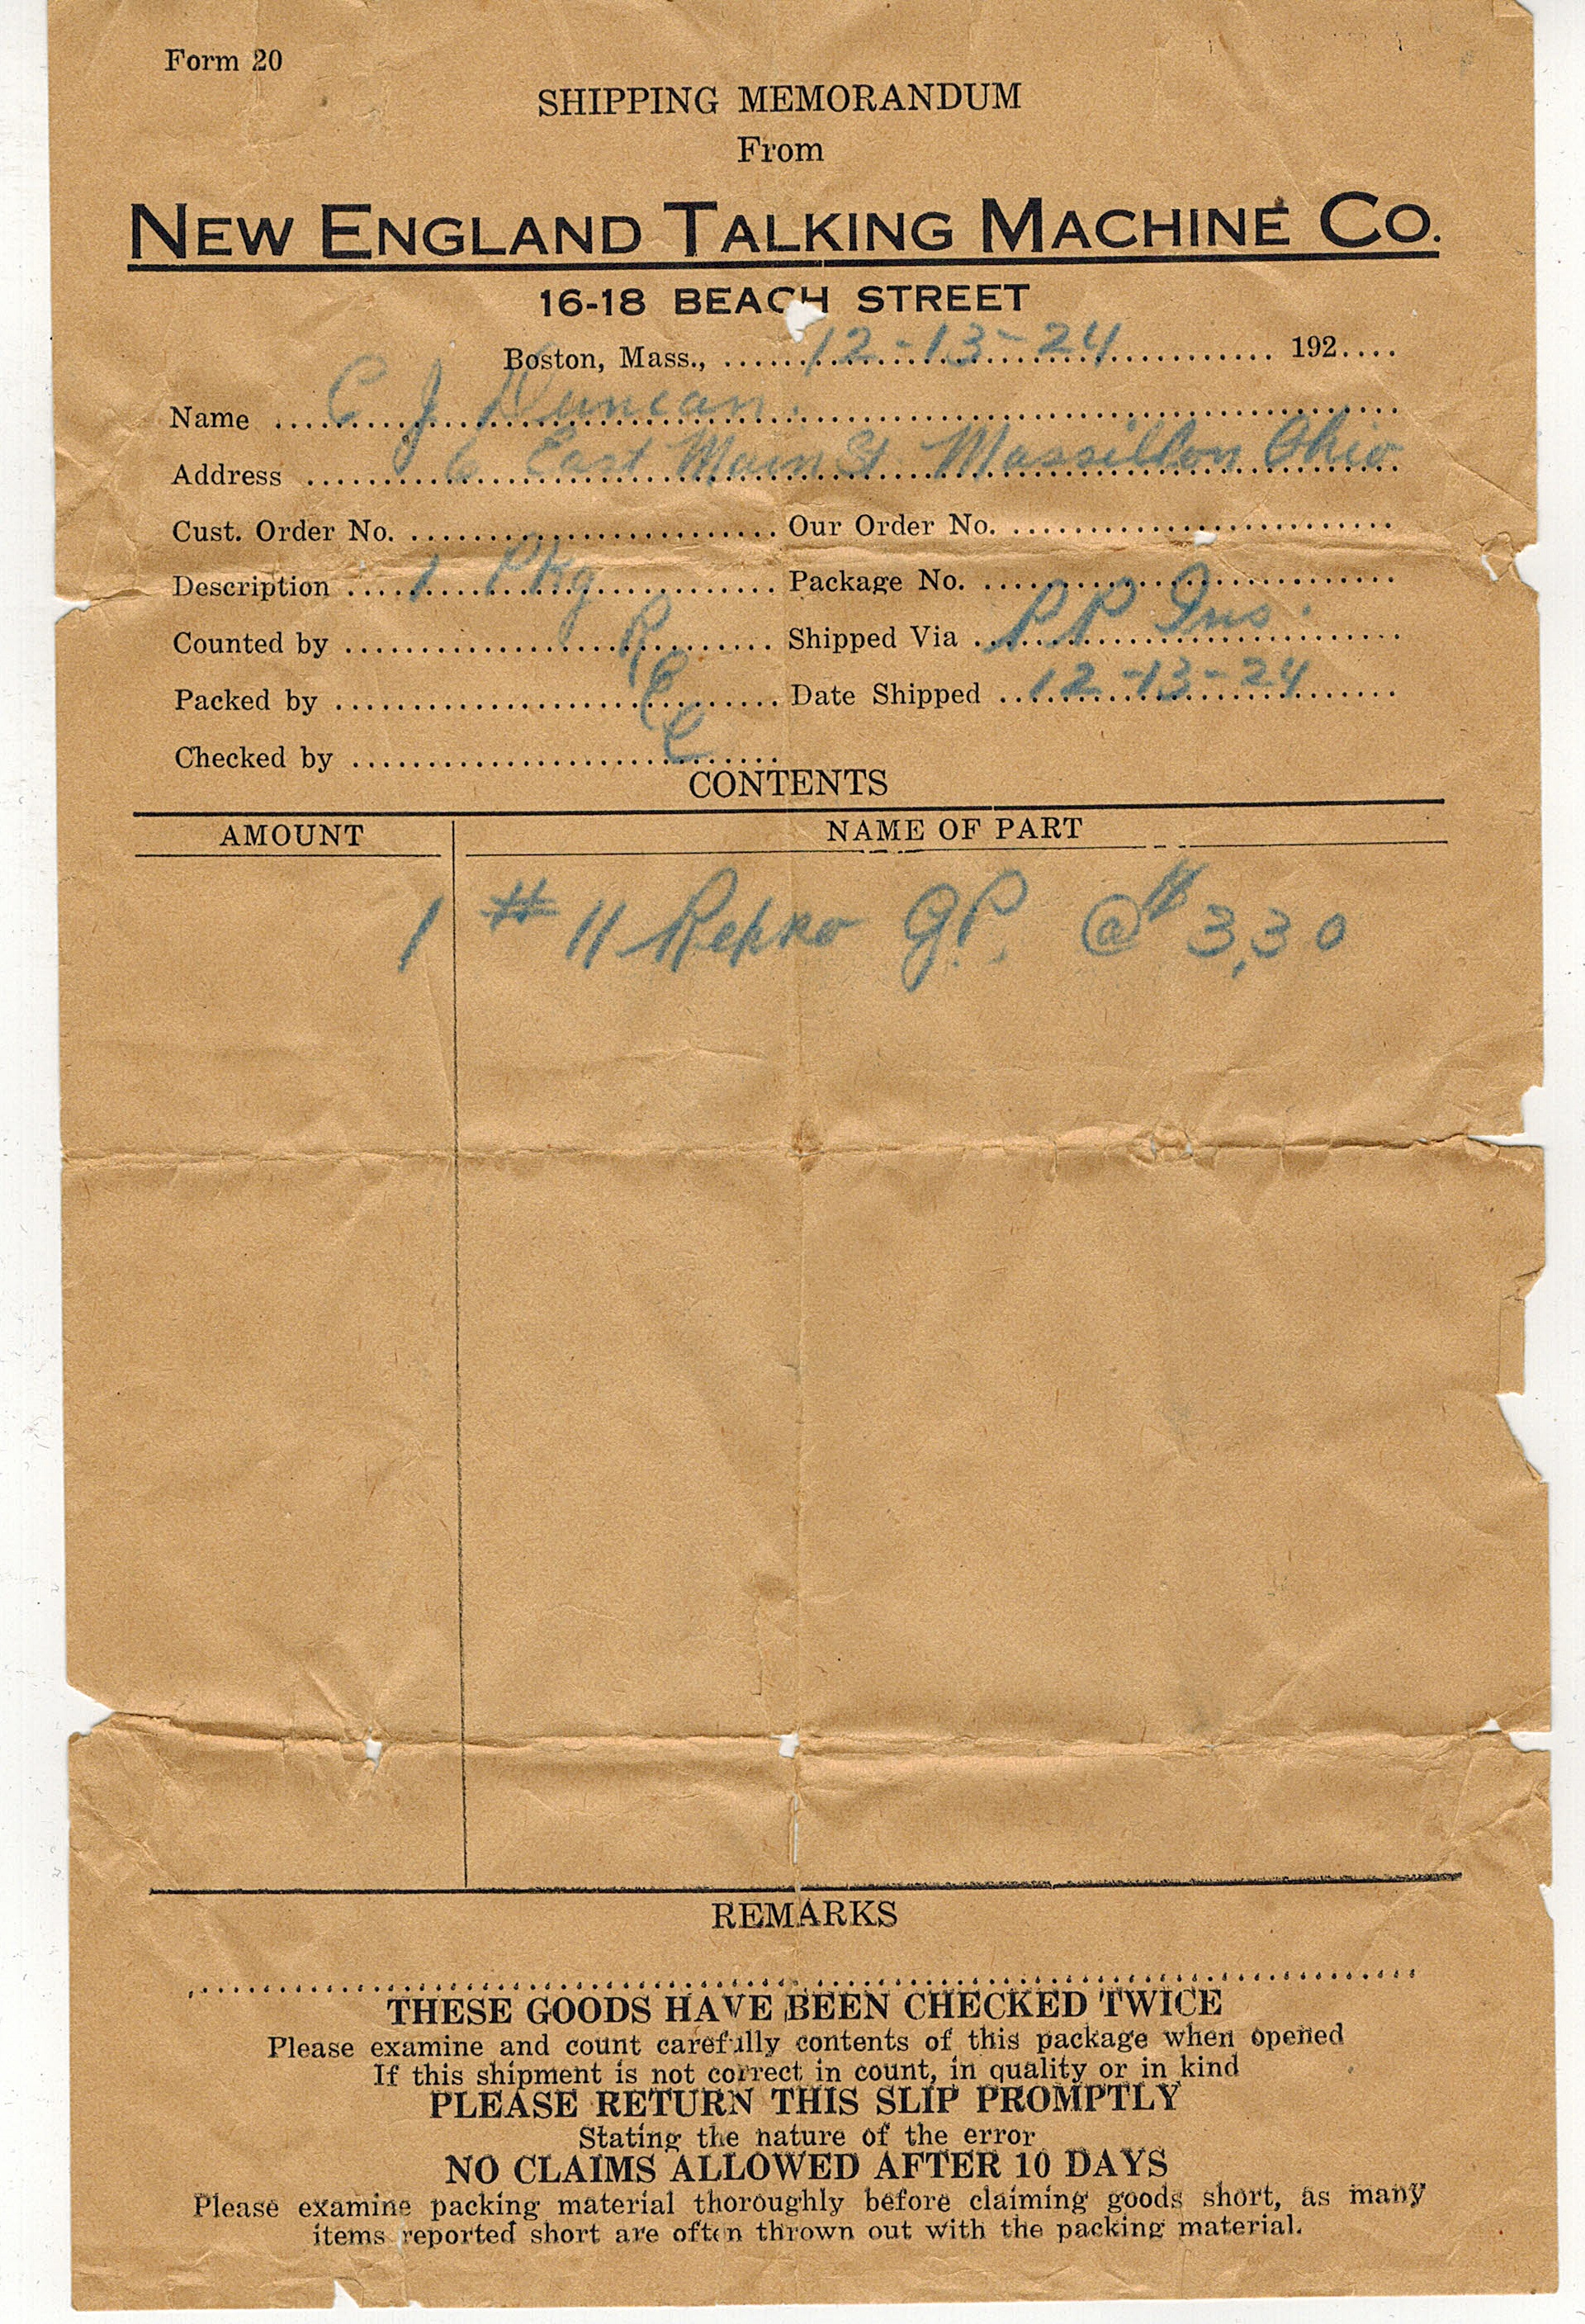 Form 20
SHIPPING MEMORANDUM
From
NEW ENGLAND TALKING MACHINE CO.
16-18 BEACH STREET
Boston, Mass., 12-13-24 192....
Name C J Duncan.
Address 6 East Main St Massillon Ohio
Cust. Order No. Our Order No.
Description 1 Pkg Package No.
Counted by R Shipped Via P P Ins.
Packed by C Date Shipped 12-13-24
Checked by C
CONTENTS
AMOUNT NAME OF PART
1 # 11 Repro G.P. @ $ 3,30
REMARKS
THESE GOODS HAVE BEEN CHECKED TWICE
Please examine and count carefully contents of this package when opened
If this shipment is not correct in count, in quality or in kind
PLEASE RETURN THIS SLIP PROMPTLY
Stating the nature of the error
NO CLAIMS ALLOWED AFTER 10 DAYS
Please examine packing material thoroughly before claiming goods short, as many
items reported short are often thrown out with the packing material.